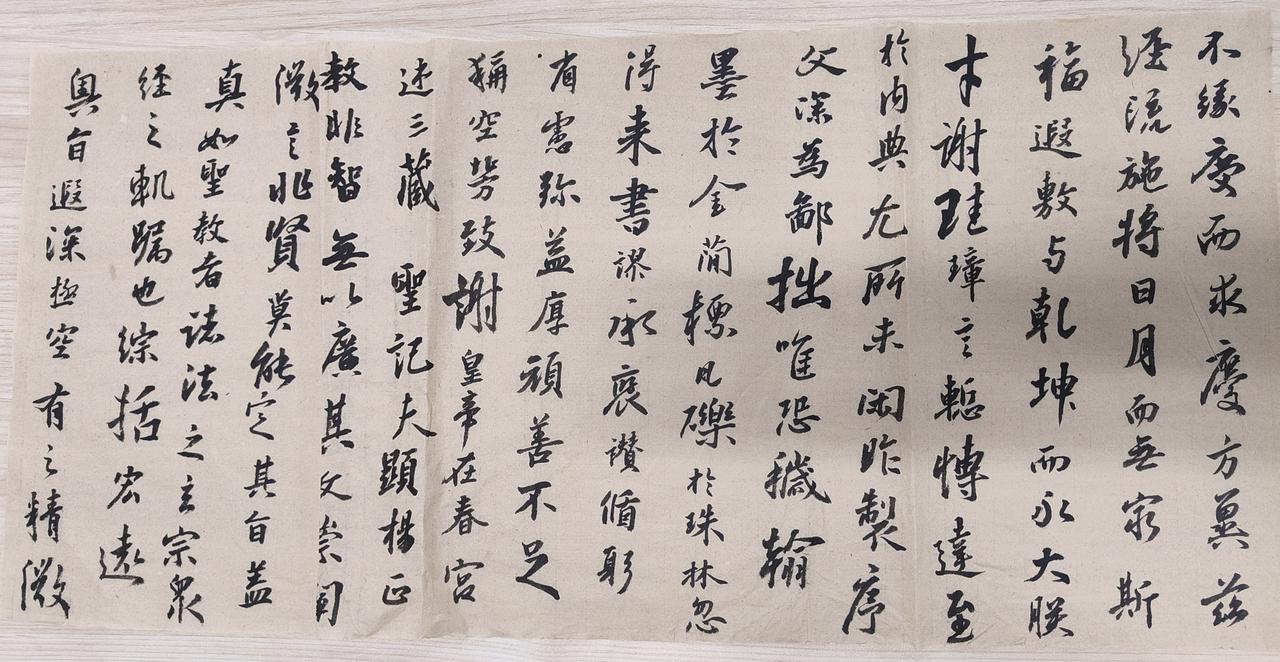 不緣慶而求慶方冀茲
經流施將日月而無窮斯
福遐敷与乾坤而永大朕
才謝珪璋言慙博達至
於内典尤所未閑昨製序
文深為鄙拙唯恐穢翰
墨於金簡標瓦礫於珠林忽
得来書謬承褒讚循躬
省慮弥益厚顔善不足
稱空勞致謝皇帝在春宮
述三藏 聖記夫顯揚正
教非智無以廣其文崇闡
微言非賢莫能定其旨盖
真如聖教者諸法之玄宗衆
經之軌躅也綜括宏遠
奥旨遐深極空有之精微